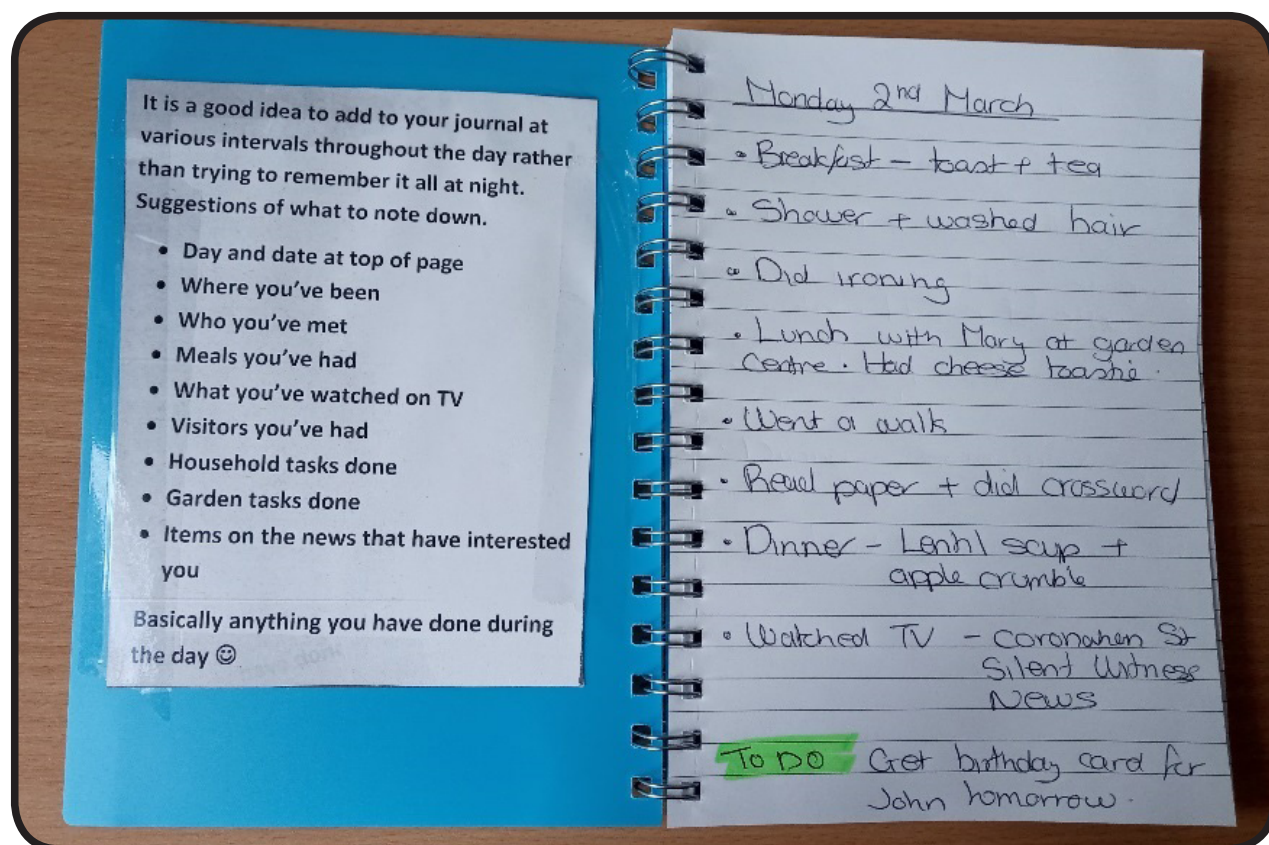 It is a good idea to add to your journal at
various intervals throughout the day rather
than trying to remember it all at night.
Suggestions of what to note down.
• Day and date at top of page
• Where you've been
• Who you've met
• Meals you've had
• What you've watched on TV
• Visitors you've had
• Household tasks done
• Garden tasks done
• Items on the news that have interested
you
Basically anything you have done during
the day ☺
Monday 2nd March
• Breakfast – toast + tea
• Shower + washed hair
• Did ironing
• Lunch with Mary at garden
Centre. Had cheese toastie.
• Went a walk
• Read paper + did crossword
• Dinner – Lentil soup +
apple crumble
• Watched TV – Coronation St
Silent Witness
News
TO DO Get birthday card for
John tomorrow.